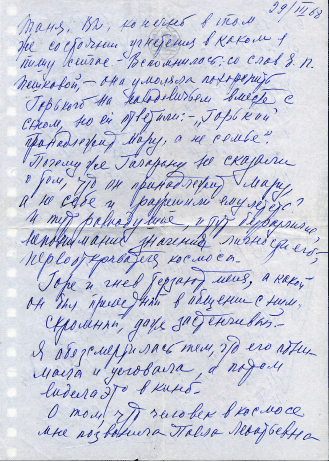 29/III 68
Таня, В2, конечно в том
же состоянии угнетения в каком я
пишу сейчас – Вспомнилось: со слов Е. П.
Пешковой, – она умоляла похоронить
Горького на Новодевичьем вместе с
сыном, но ей ответили: – "Горький
принадлежит миру, а не семье".
Почему же Гагарину не сказали
о том, что он принадлежит миру,
а не себе и
И тут равнодушие, и тут
непонимание значения личности его,
первооткрывателя космоса.
Горе и гнев терзают меня, а какой
он был прелестный в общении с ним.
скромный, даже застенчивый. –
Я обессмертилась тем, что его обни-
мала и целовала, а потом
видела это в кино.
О том, что человек в космосе
мне позвонила Павла Леонтьевна